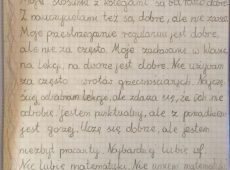 Moje stosunki z kolegami są bardzo dobre.
Z nauczycielami też są dobre, ale nie zawsze.
Moje przestrzeganie regulaminu jest dobre,
ale nie za często. Moje zachowanie w klasie
na lekcji, na dworze jest dobre. Nie używam
za często zwrotów grzecznościowych. Najczę-
ściej odrabiam lekcje, ale zdarza się, że ich nie
odrobię. Jestem punktualny, ale z porządkiem
jest gorzej. Uczę się dobrze, ale jestem
niezbyt pracowity. Najbardziej lubię wf.
Nie lubię matematyki. Nie umiem matematyki